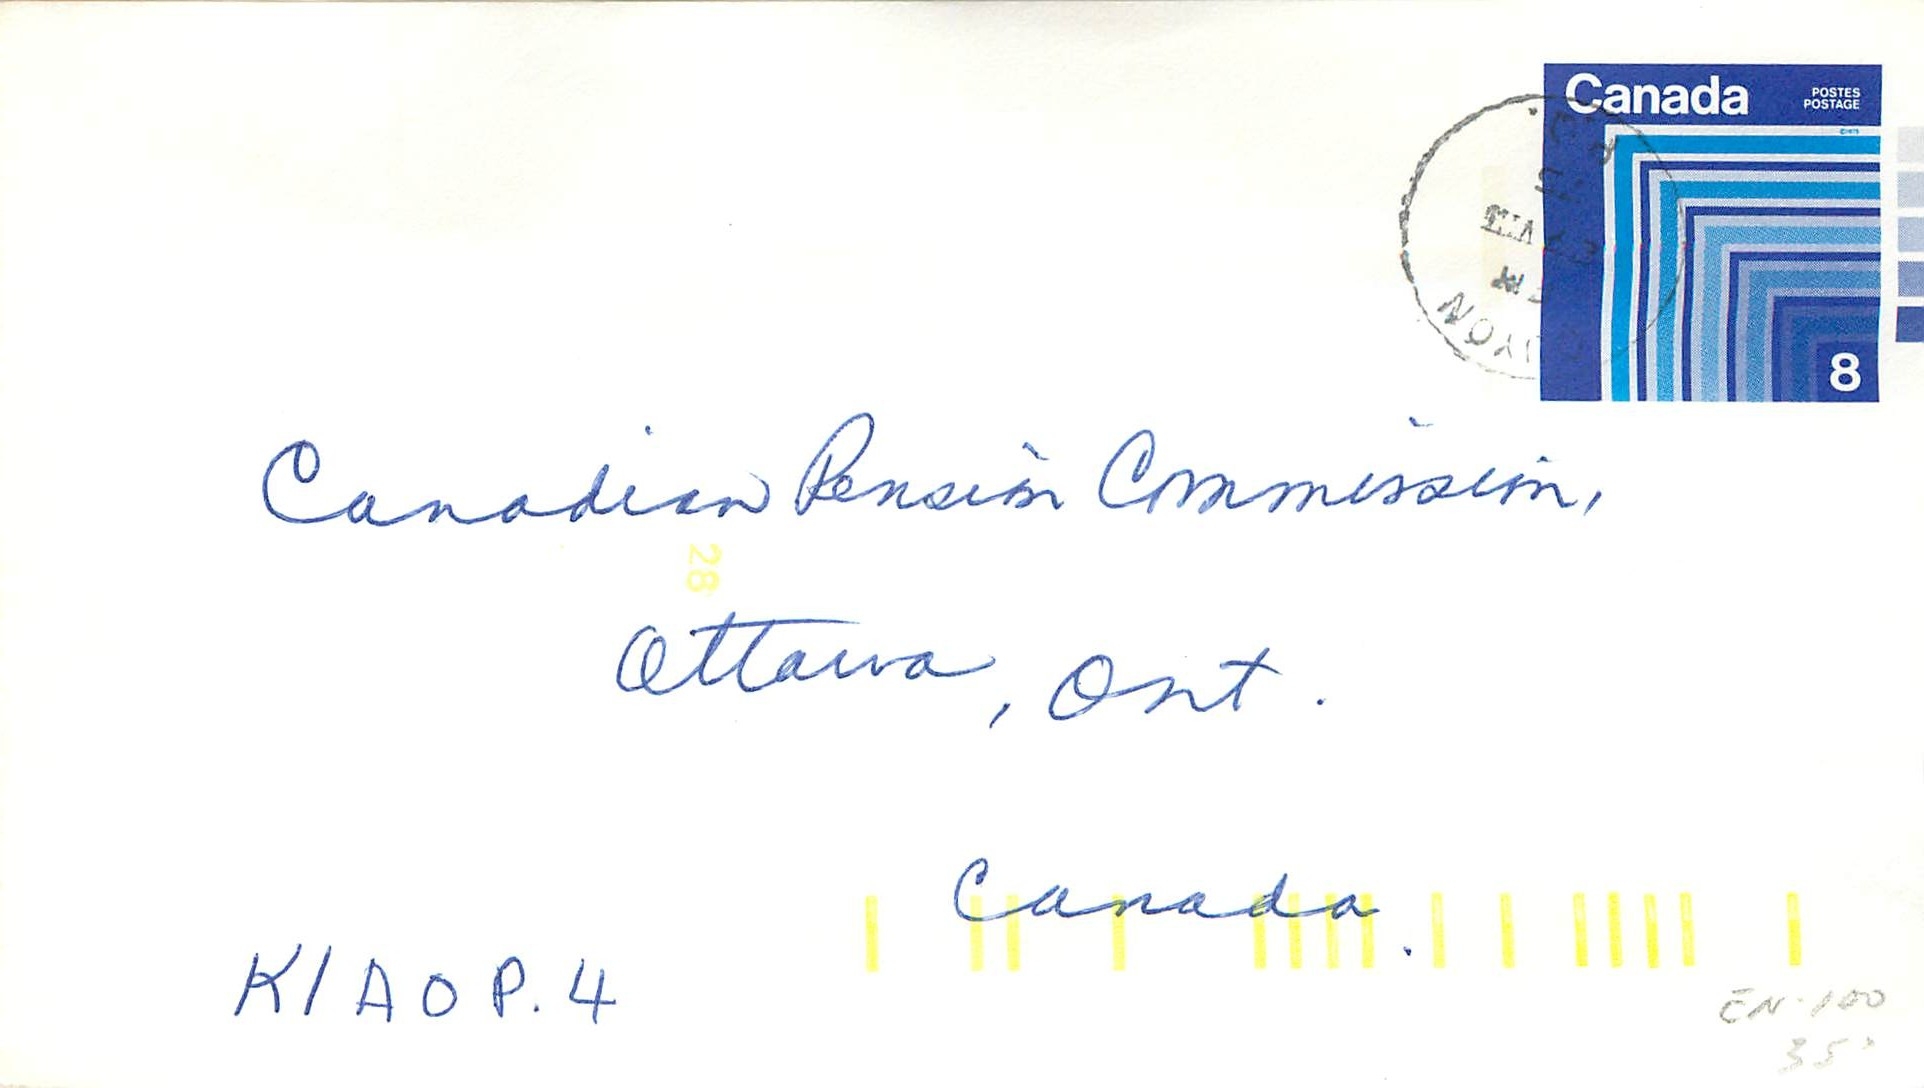 Canada
POSTES
POSTAGE
8
Canadian Pension Commission,
28
Ottawa, Ont.
Canada.
K1A0P.4
EN-100
35